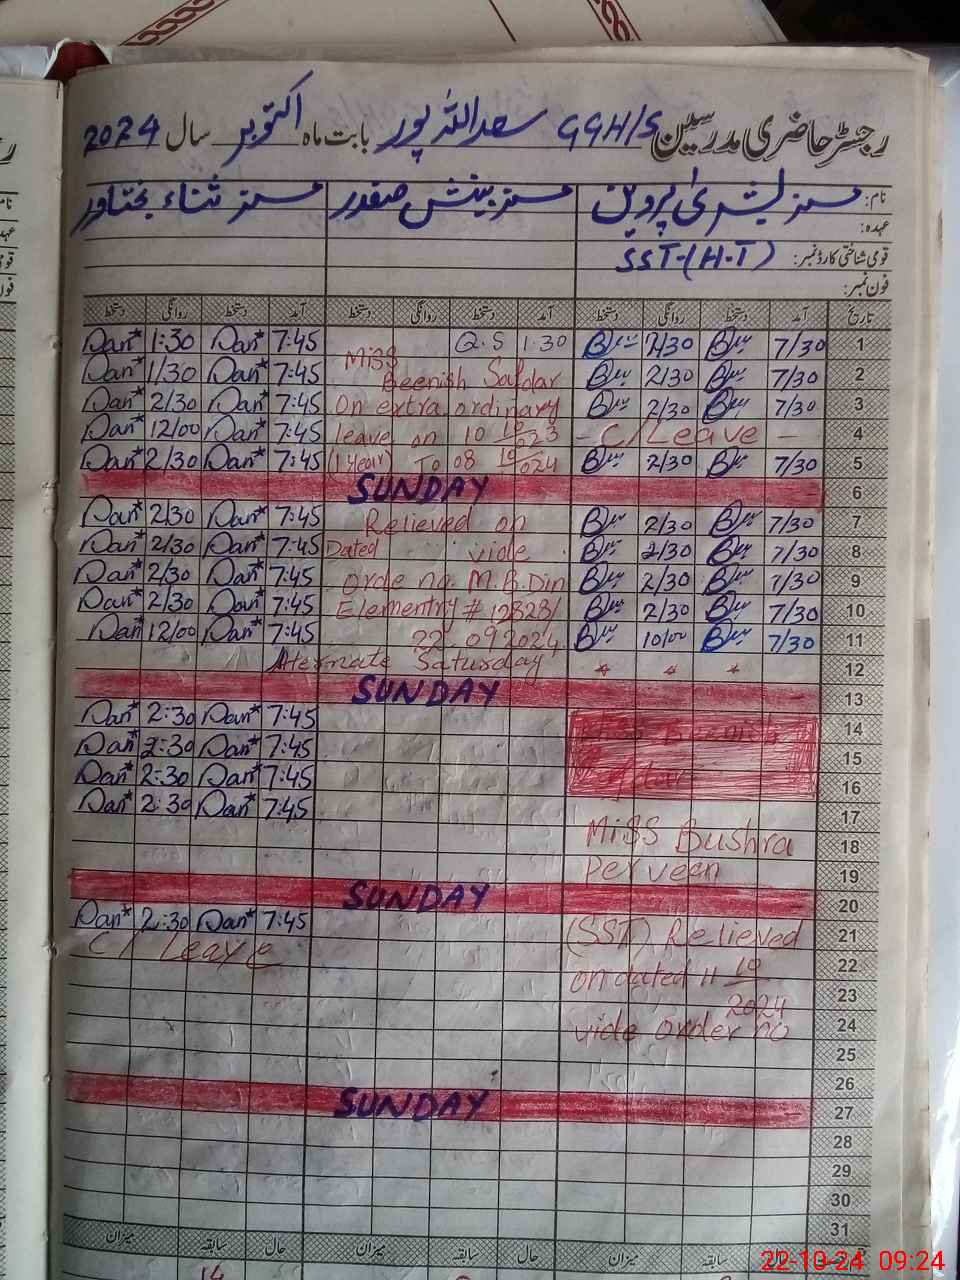 رجسٹر حاضری مدرسین GGH/S سعداللہ پور بابت ماہ اکتوبر سال 2024
نام: مسز بشریٰ پروین مسز بینش صفدر مسز ثناء بختاور
عہدہ:
قومی شناختی کارڈ نمبر: SST-(H.T)
فون نمبر:
تاریخ آمد دستخط روانگی دستخط آمد دستخط روانگی دستخط آمد دستخط روانگی دستخط
1:30 7:45 Q.S 1:30 2/30 7/30 1
1/30 7:45 Miss Beenish Safdar 2/30 7/30 2
2/30 7:45 On extra ordinary 2/30 7/30 3
12/00 7:45 leave on 10 10/023 - C/Leave - 4
2/30 7:45 (1 year) To 08 10/024 2/30 7/30 5
SUNDAY 6
2/30 7:45 Relieved on 2/30 7/30 7
2/30 7:45 Dated vide 2/30 7/30 8
2/30 7:45 orde no. M.B.Din 2/30 7/30 9
2/30 7:45 Elementry # 12828/ 2/30 7/30 10
12/00 7:45 22.09 2024 10/00 7/30 11
Alternate Saturday * * * 12
SUNDAY 13
2:30 7:45 14
2:30 7:45 15
2:30 7:45 16
2:30 7:45 17
Miss Bushra 18
Perveen 19
SUNDAY 20
2:30 7:45 (SST) Relieved 21
C/ Leave on dated 11 10/2024 22
23
vide order no 24
25
26
SUNDAY 27
28
29
30
31
میزان سابقہ حال میزان سابقہ حال میزان سابقہ حال
14
22-10-24 09:24